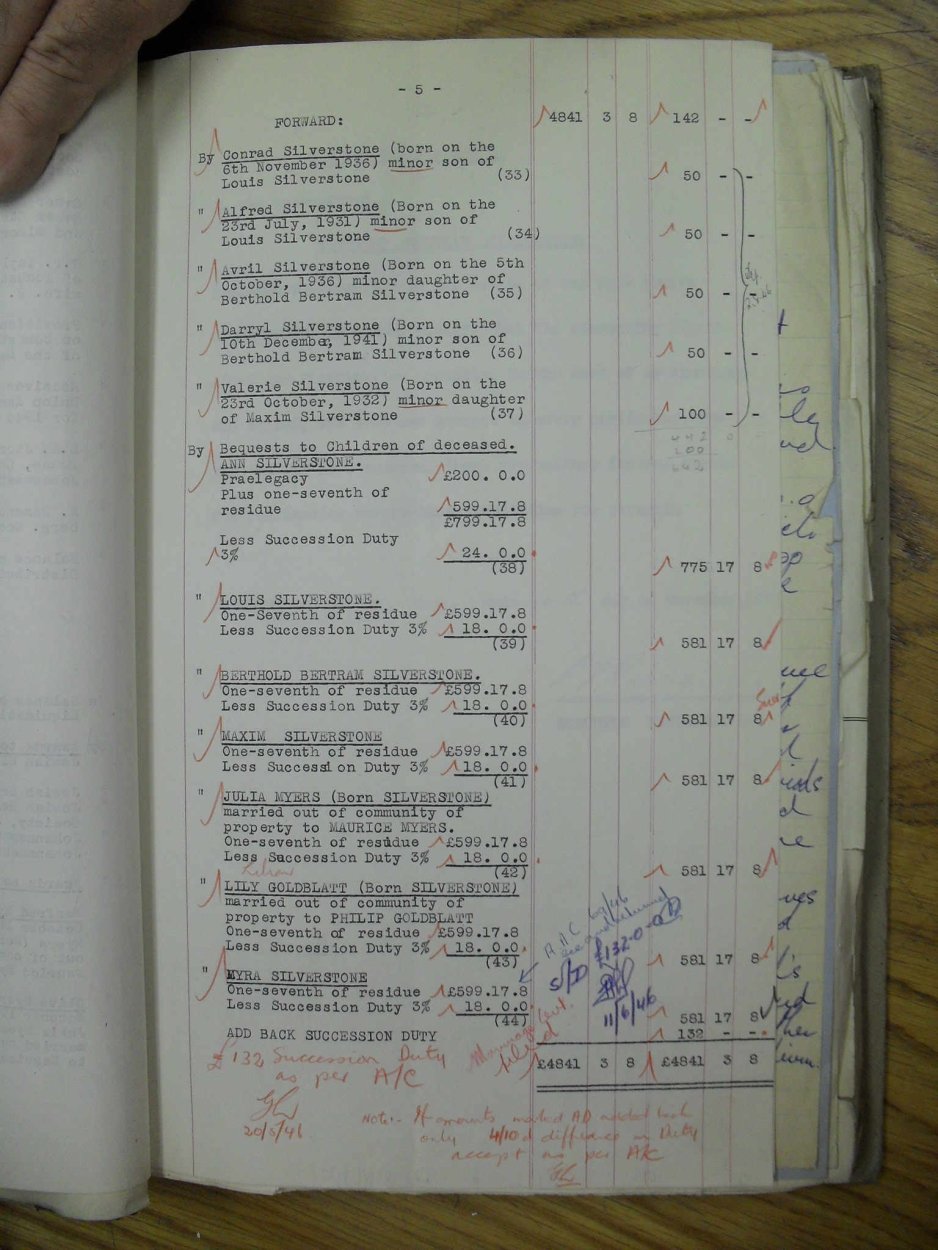 - 5 -
FORWARD: 4841 3 8 142 - -
By Conrad Silverstone (born on the
6th November 1936) minor son of
Louis Silverstone (33) 50 - -
" Alfred Silverstone (Born on the
23rd July, 1931) minor son of
Louis Silverstone (34) 50 - -
" Avril Silverstone (Born on the 5th
October, 1936) minor daughter of
Berthold Bertram Silverstone (35) 50 - -
" Darryl Silverstone (Born on the
10th December, 1941) minor son of
Berthold Bertram Silverstone (36) 50 - -
" Valerie Silverstone (Born on the
23rd October, 1932) minor daughter
of Maxim Silverstone (37) 100 - -
442 0
200
642
By Bequests to Children of deceased.
ANN SILVERSTONE.
Praelegacy £200. 0.0
Plus one-seventh of
residue 599.17.8
£799.17.8
Less Succession Duty
3% 24. 0.0
(38) 775 17 8
" LOUIS SILVERSTONE.
One-Seventh of residue £599.17.8
Less Succession Duty 3% 18. 0.0
(39) 581 17 8
" BERTHOLD BERTRAM SILVERSTONE.
One-seventh of residue £599.17.8
Less Succession Duty 3% 18. 0.0
(40) 581 17 8
" MAXIM SILVERSTONE
One-seventh of residue £599.17.8
Less Succession Duty 3% 18. 0.0
(41) 581 17 8
" JULIA MYERS (Born SILVERSTONE)
married out of community of
property to MAURICE MYERS.
One-seventh of residue £599.17.8
Less Succession Duty 3% 18. 0.0
(42) 581 17 8
Lilian
" LILY GOLDBLATT (Born SILVERSTONE)
married out of community of
property to PHILIP GOLDBLATT
One-seventh of residue £599.17.8
Less Succession Duty 3% 18. 0.0
(43) 581 17 8
" MYRA SILVERSTONE
One-seventh of residue £599.17.8
Less Succession Duty 3% 18. 0.0
(44) 581 17 8
S/D £132-0-0
11/6/46
ADD BACK SUCCESSION DUTY 132 - -
£4841 3 8 £4841 3 8
£132 Succession Duty
as per A/C
20/5/46
Note:- If amounts marked AD added back
only 4/10d difference in Duty
accept as per A/C